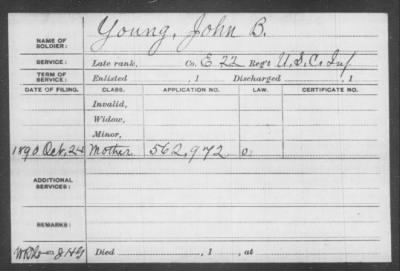 Young, John B.
NAME OF SOLDIER:
SERVICE: Late rank, Co. E 22 Reg't U.S.C. Inf
TERM OF SERVICE: Enlisted , 1 Discharged , 1
DATE OF FILING. CLASS. APPLICATION NO. LAW. CERTIFICATE NO.
Invalid,
Widow,
Minor,
1890 Oct. 24 Mother 562,972 o
ADDITIONAL SERVICES:
REMARKS:
Died , 1 , at